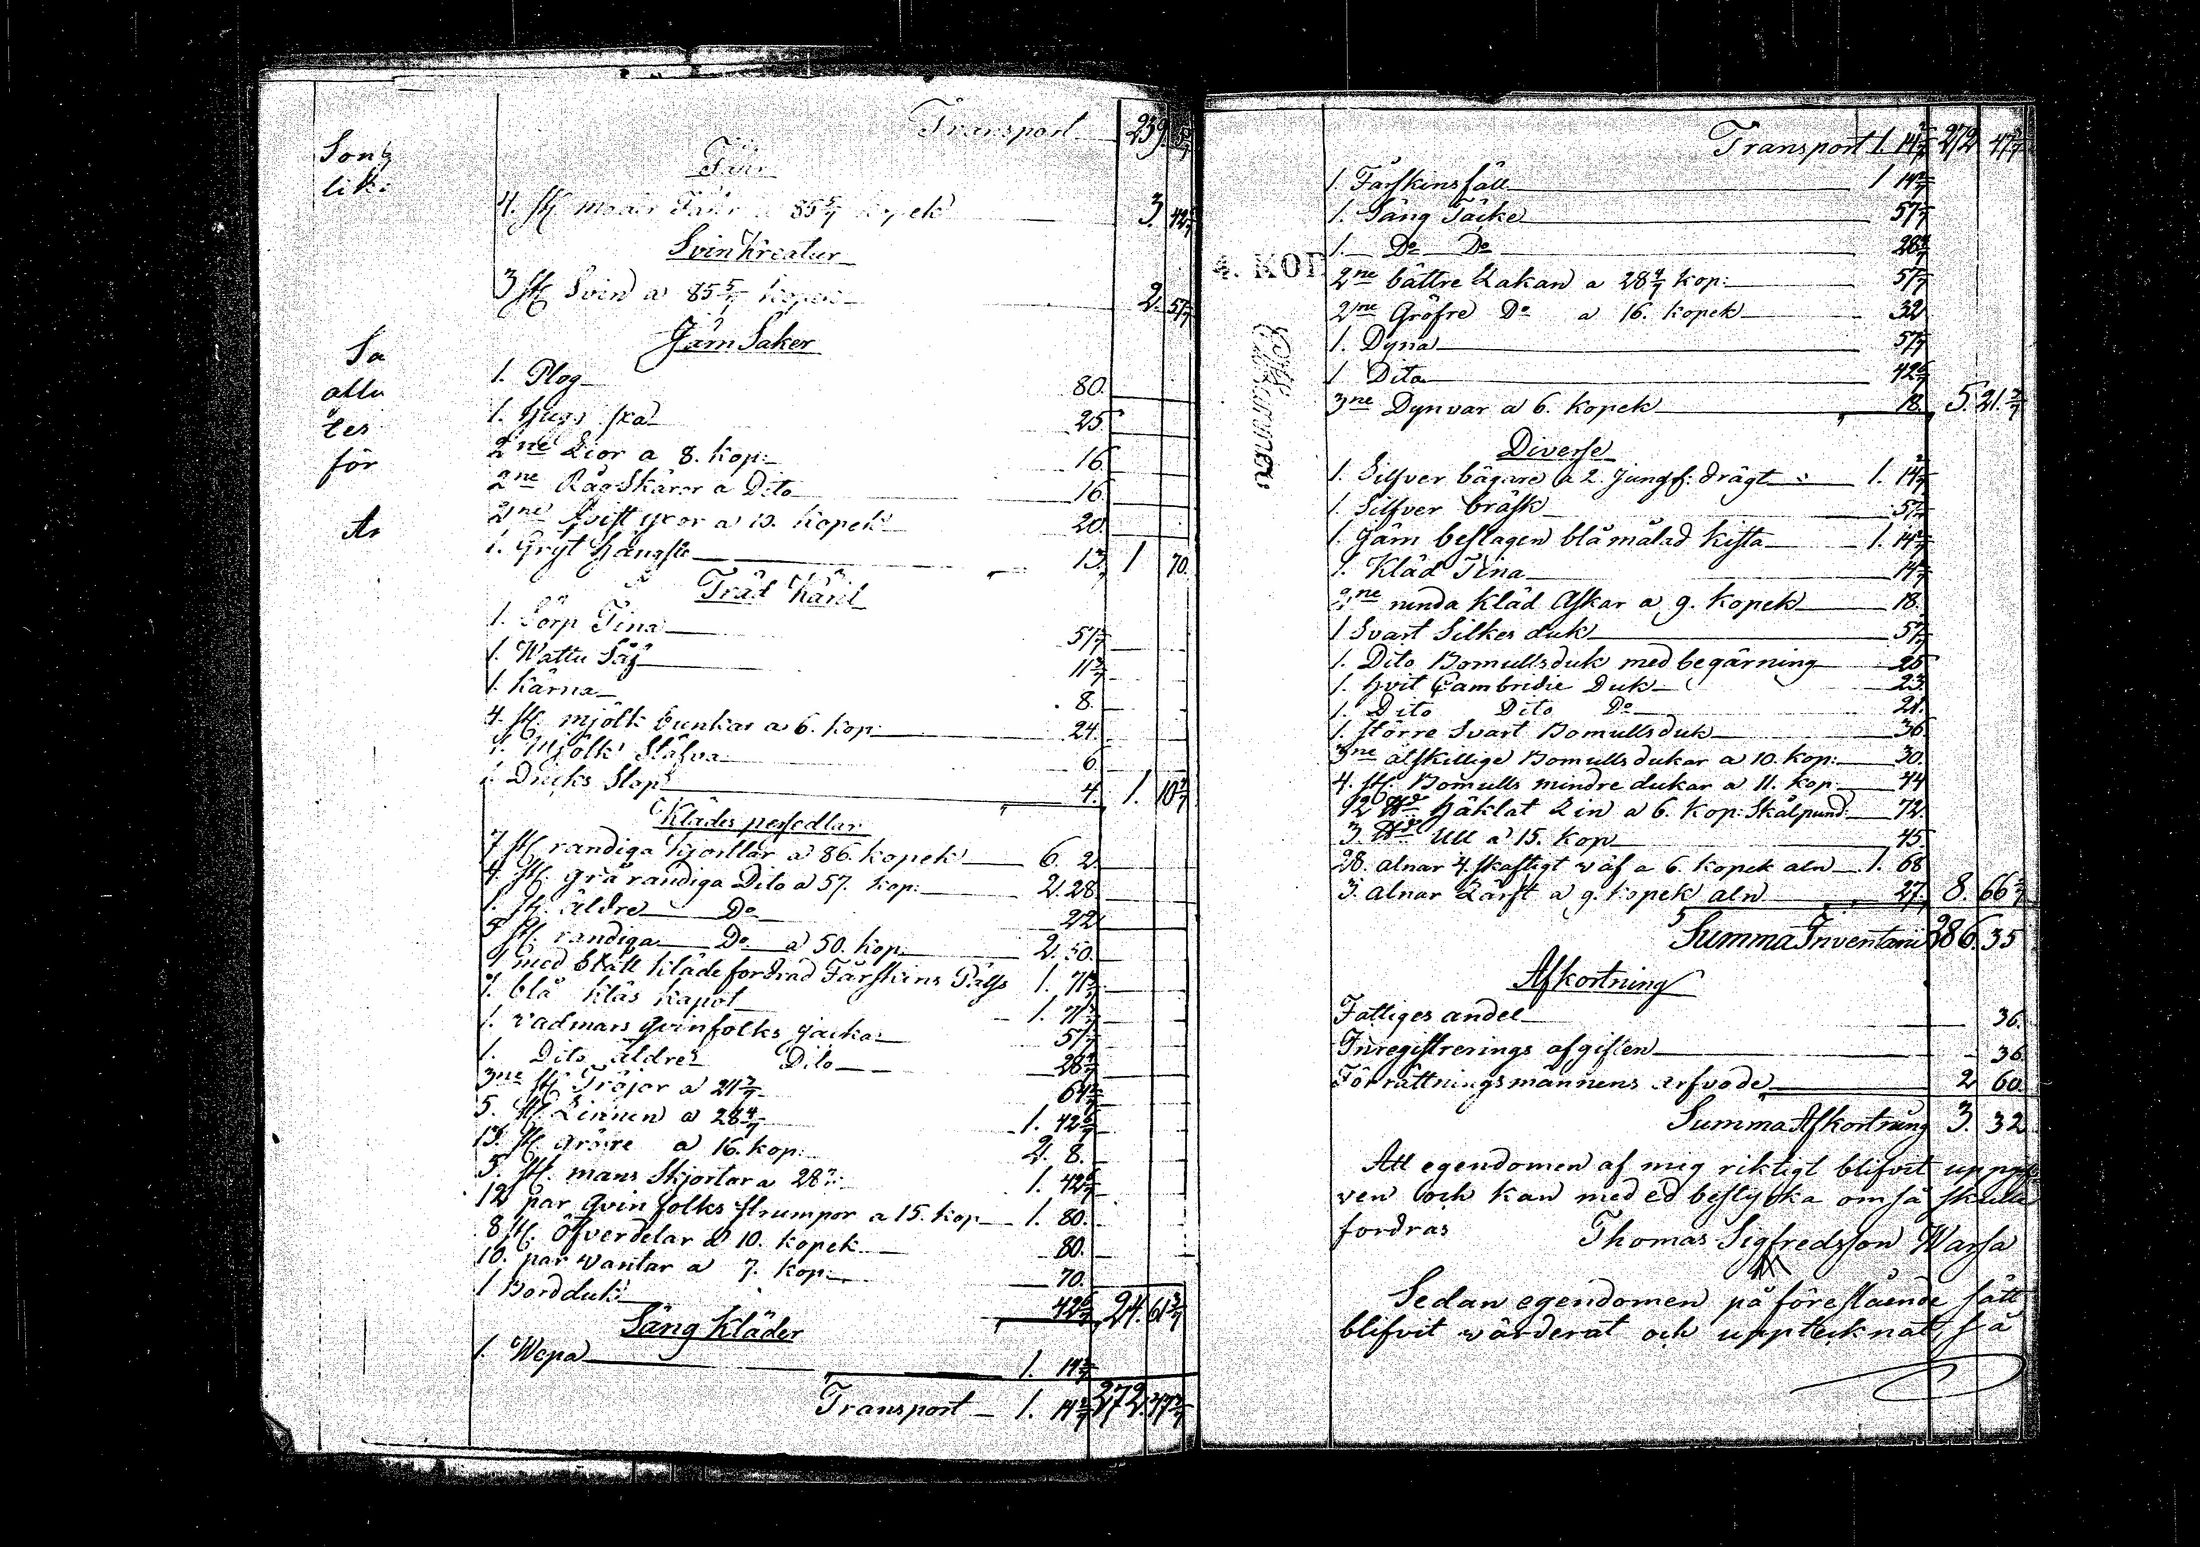 Transport 239. 5/7
Fåår
4. st. mödir Fåår a 85 5/7 kopek 3. 42 6/7
Svin Kreatur
3 st. Svin a 85 5/7 kopek 2. 57 1/7
Järn Saker
1. Plog 80.
1. Huggs 25.
2ne Lior a 8. kop: 16.
2ne Råg Skäror a Dito 16.
2ne qvist yxor a 10. kopek 20.
1. Gryt hängsle 13. 1 70.
Träd Käril
1. Sörp Tina 57 1/7
1. Wattu Såå 11 3/7
1. Kärna 8.
4. st. mjölk bunkar a 6. kop 24.
1. Mjölk Stäfva 6
1. Dricks Stop 4. 1. 10 4/7
Klädes persedlar
7 st. randiga kjortlar a 86. kopek 6. 2
4. st. grå randiga Dito a 57. kop: 2. 28.
1. st. äldre Do 22
5 st. randiga Do a 50. kop 2. 50.
1 med blått kläde fordrad Fårskins Päls 1. 71 3/7
1. blå kläs kapot 1. 71 3/7
1. vadmars qvinfolks jacka 57 1/7
1. Dito äldre Dito 28 4/7
3ne st. Tröjor a 21 3/7 64 2/7
5. st. Linnen a 28 4/7 1. 42 6/7
13. st. gröfre a 16. kop: 2. 8.
5. st. mans Skjortar a 28 4/7 1. 42 6/7
12 par qvinfolks strumpor a 15. kop 1. 80.
8 st. öfverdelar a 10. kopek 80.
10. par vantar a 7. kop: 70.
1 Bordduk 42 6/7 24. 61 3/7
Säng Kläder
1. Wepa 1. 14 2/7
Transport 1. 14 2/7 272. 47 3/7
Son
lik
Sa
attu
tes
för
Ar
Transport 1. 14 2/7 272 47 3/7
1. Fårskinsfäll 1 14 2/7
1. Säng Täcke 57 1/7
1. Do Do 28 4/7
2ne bättre Lakan a 28 4/7 kop: 57 1/7
2ne Gröfre Do a 16. kopek 32
1. Dyna 57 1/7
1 Dito 42 6/7
3ne Dynvar a 6. kopek 18. 5. 21. 3/7
Diverse
1. Silfver bägare a 2. Jungf: drägt 1. 14 2/7
1. Silfver bräsk 57 1/7
1. Järn beslagen blåmålad kista 1. 14 2/7
1. Kläd Tina 14 2/7
2ne runda kläd Askar a 9. kopek 18.
1 Svart Silkes duk 57 1/7
1. Dito Bomullsduk med begärning 25
1. hvit Cambridie Duk 23
1. Dito Dito Do 21.
1. större Svart Bomullsduk 36
3ne åtskillige Bomullsdukar a 10. kop: 30.
4. st. Bomulls mindre dukar a 11. kop: 44
12 Häklat Lin a 6. kop: Skålpund 72.
3. Ull a 15. kop 45.
28. alnar 4. skaftigt väf a 6. kopek aln 1. 68
3. alnar Lärft a 9. kopek aln 27. 8. 66 2/7
Summa Inventarii 286. 35
Afkortning
Fattiges andel 36.
Inregistrerings afgiften 36
Förrättningsmännens arfvode 2 60.
Summa Afkortning 3. 32
Att egendomen af mig riktigt blifvit uppgif
ven och kan med ed bestyrka om så skulle
fordras Thomas Sigfredsson Warsa
Sedan egendomen på föreslående sätt
blifvit värderat och upptecknat, så
4. KOP